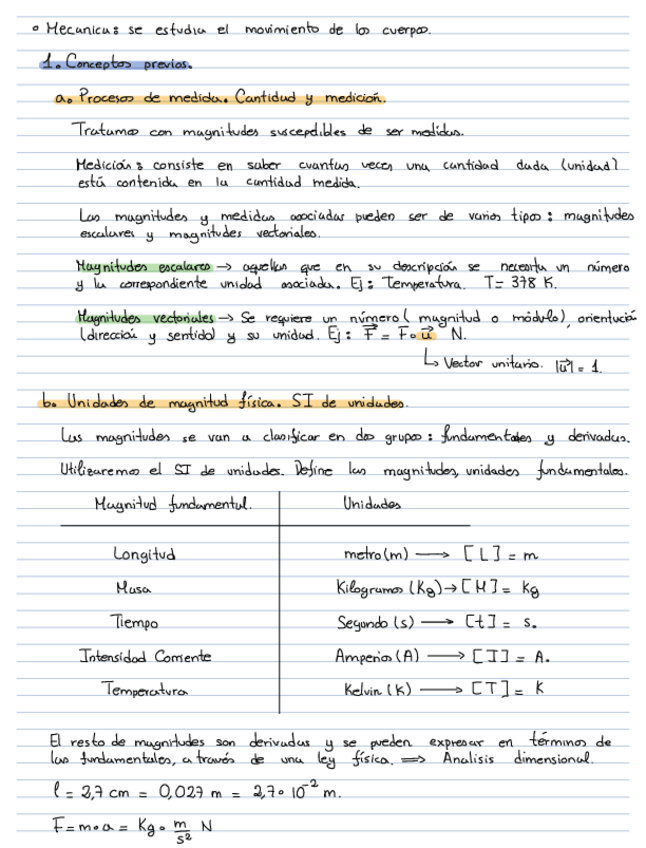 • Mecanica: se estudia el movimiento de los cuerpos.
1. Conceptos previos.
a. Procesos de medida. Cantidad y medición.
Tratamos con magnitudes suscepdibles de ser medidas.
Medición: consiste en saber cuantas veces una cantidad dada (unidad)
está contenida en la cantidad medida.
Las magnitudes y medidas asociadas pueden ser de varios tipos: magnitudes
escalares y magnitudes vectoriales.
Magnitudes escalares → aquellas que en su descripción se necesita un número
y la correspondiente unidad asociada. Ej: Temperatura. T = 378 K.
Magnitudes vectoriales → Se requiere un número (magnitud o módulo), orientación
(dirección y sentido) y su unidad. Ej: F⃗ = F · u⃗ N.
↳ Vector unitario. |u⃗| = 1.
b. Unidades de magnitud física. SI de unidades.
Las magnitudes se van a clasificar en dos grupos: fundamentales y derivadas.
Utilizaremos el SI de unidades. Define las magnitudes, unidades fundamentales.
Magnitud fundamental. Unidades
Longitud metro (m) → [L] = m
Masa Kilogramos (Kg) → [M] = Kg
Tiempo Segundo (s) → [t] = s.
Intensidad Corriente Amperios (A) → [I] = A.
Temperatura Kelvin (K) → [T] = K
El resto de magnitudes son derivadas y se pueden expresar en términos de
las fundamentales, a través de una ley física. ⇒ Analisis dimensional.
l = 2,7 cm = 0,027 m = 2,7 · 10⁻² m.
F = m · a = Kg · m/s² N